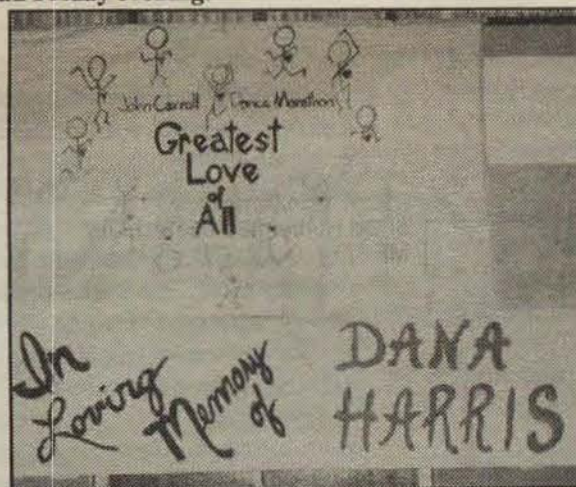 evening.
John Carroll Dance Marathon
Greatest
Love
of
All
In
Loving
Memory
of
DANA
HARRIS